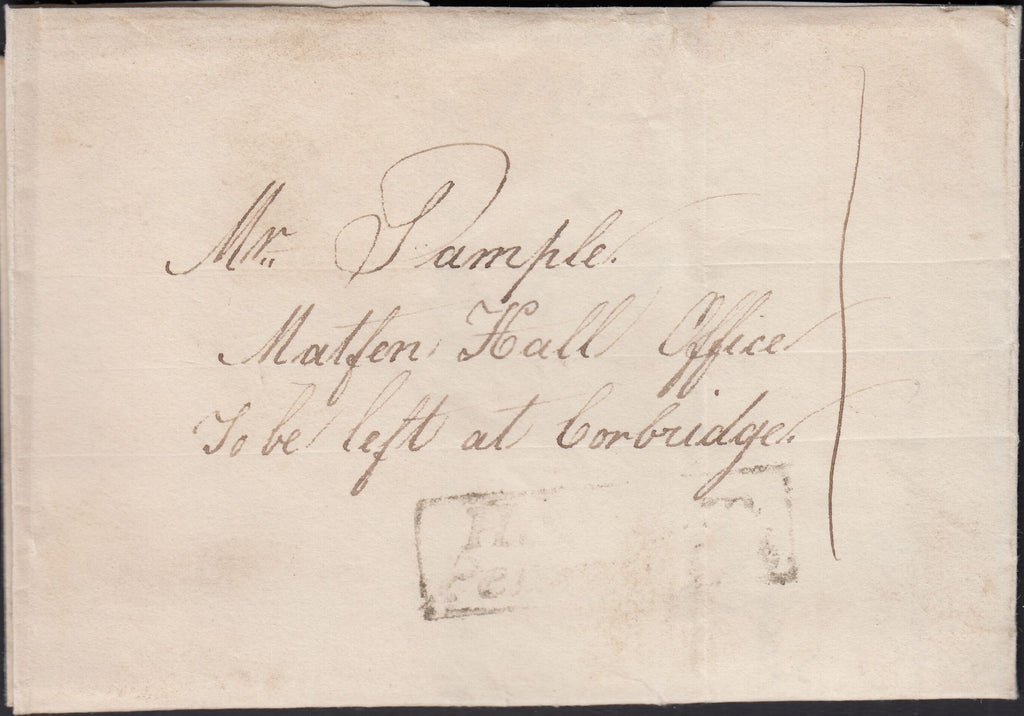 Mr. Sample.
Matfen Hall Office
To be left at Corbridge.
1